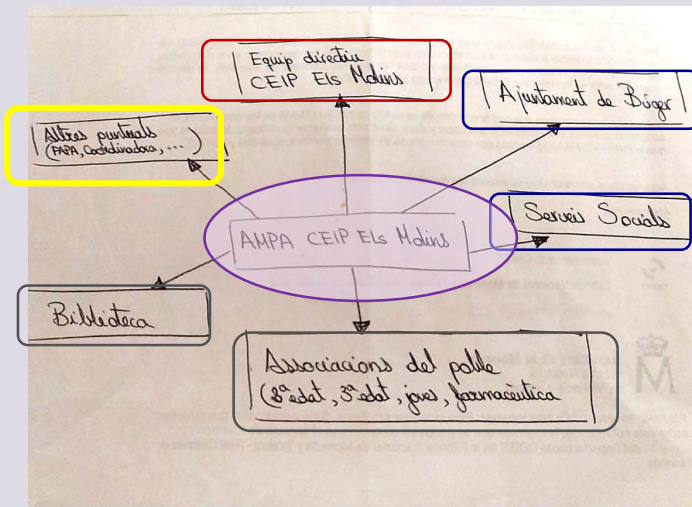 Equip directiu
CEIP Els Molins
Ajuntament de Búger
Altres puntuals
(FAPA, Coordinadora, ...)
Serveis Socials
AMPA CEIP Els Molins
Biblioteca
Associacions del poble
(3ª edat, joves, farmacèutica